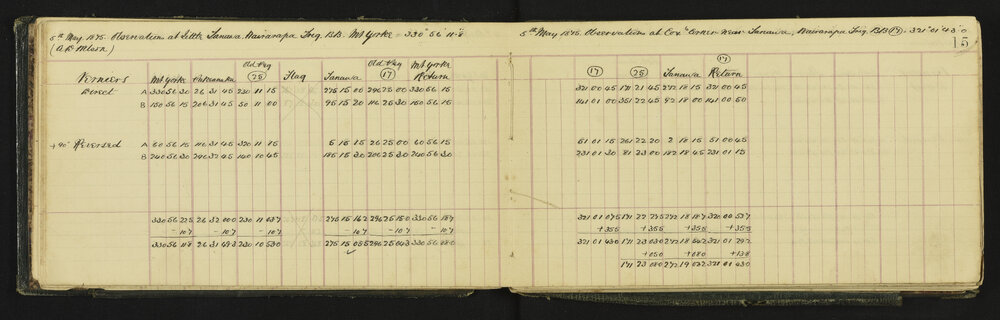 5th May 1875. Observations at Little Tanawa, Wairarapa Trig. BB. Mt Yorke - 330° 56' 11·8
5th May 1875. Observations at Cox' Corner near Tanawa, Wairarapa Trig BB (17) - 321° 01' 43·0
15
Old Peg Old Peg Mt Yorke (17)
Verniers Mt Yorke (25) Flag Tanawa (17) Return (17) (25) Tanawa Return
Direct A 330 56 30 26 31 45 230 11 15 275 15 00 296 25 00 330 56 15 321 00 45 171 21 45 272 18 15 321 00 45
B 150 56 15 206 31 45 50 11 00 95 15 20 116 25 30 150 56 15 141 01 00 351 22 45 92 18 00 141 00 50
+90° Reversed A 60 56 15 116 31 45 320 11 15 5 15 15 26 25 00 60 56 15 51 01 15 261 22 20 2 18 15 51 00 45
B 240 56 30 296 32 45 140 10 45 185 15 30 206 25 30 240 56 30 231 01 30 81 23 00 182 18 45 231 01 15
330 56 22·5 26 32 00·0 230 11 03·7 275 15 16·2 296 25 15·0 330 56 18·7 321 01 07·5 171 22 27·5 272 18 18·7 320 00 53·7
- 10·7 - 10·7 - 10·7 - 10·7 - 10·7 + 35·5 + 35·5 + 35·5 + 35·5
330 56 11·8 26 31 49·3 230 10 53·0 275 15 05·5 296 25 04·3 330 56 08·0 321 01 43·0 171 23 03·0 272 18 54·2 321 01 29·2
+ 05·0 + 08·0 + 13·8
171 23 08·0 272 19 02·2 321 01 43·0